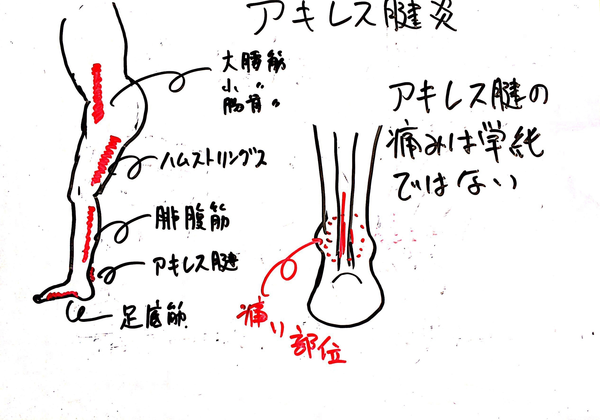 アキレス腱炎
大腰筋
小 〃
腸骨 〃
ハムストリングス
腓腹筋
アキレス腱
足底筋
アキレス腱の
痛みは単純
ではない
痛い部位